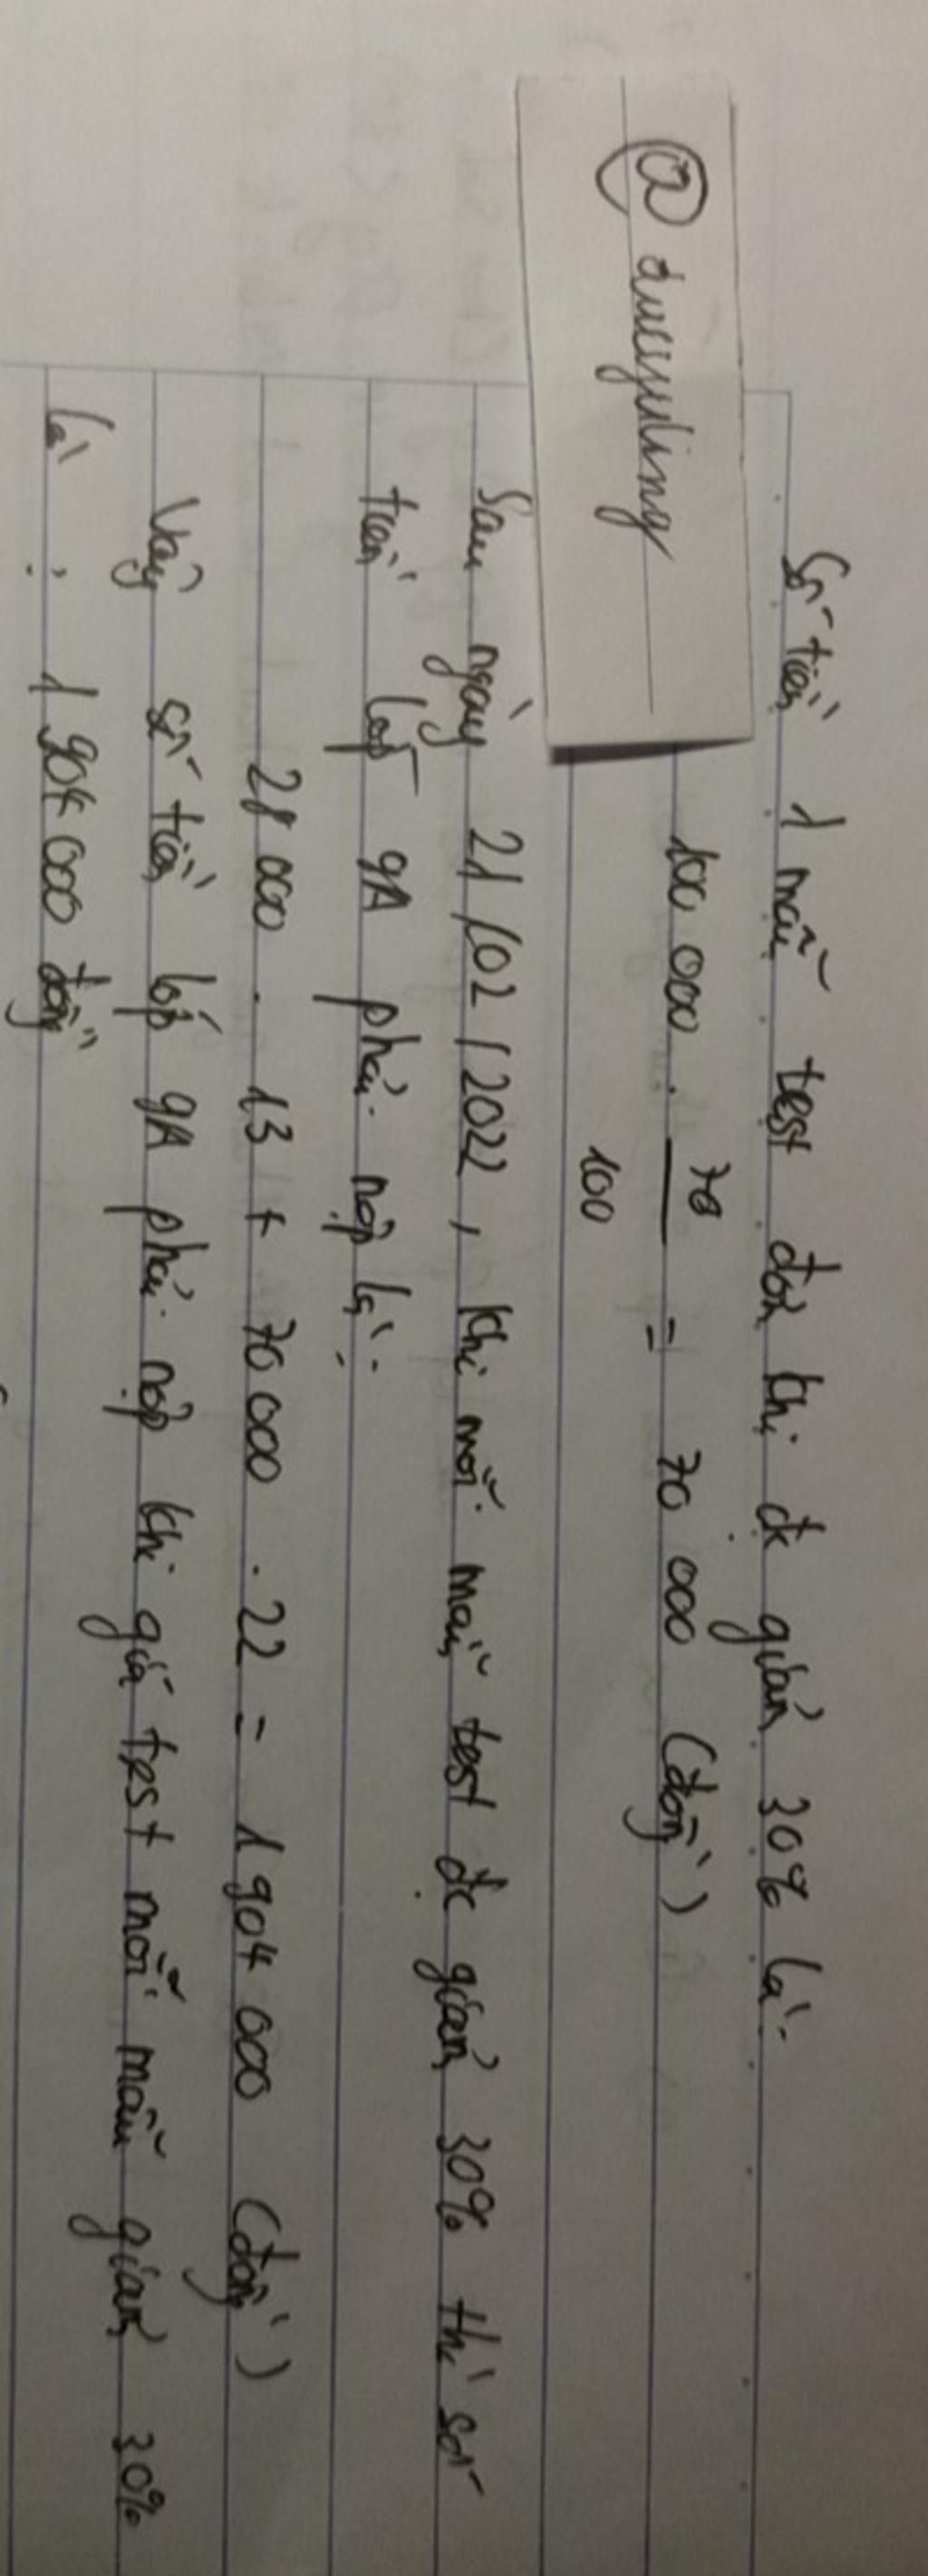 Số tiền 1 mẫu test đơn khi đc giảm 30% là:
@ dueyuling
100 000 . 70/100 = 70 000 (đồng)
Sau ngày 21/02/2022, khi mỗi mẫu test đc giảm 30% thì số
tiền lớp 9A phải nộp là:
28 000 . 13 + 70 000 . 22 = 1 904 000 (đồng)
Vậy số tiền lớp 9A phải nộp khi giá test mỗi mẫu giảm 30%
là : 1 904 000 đồng